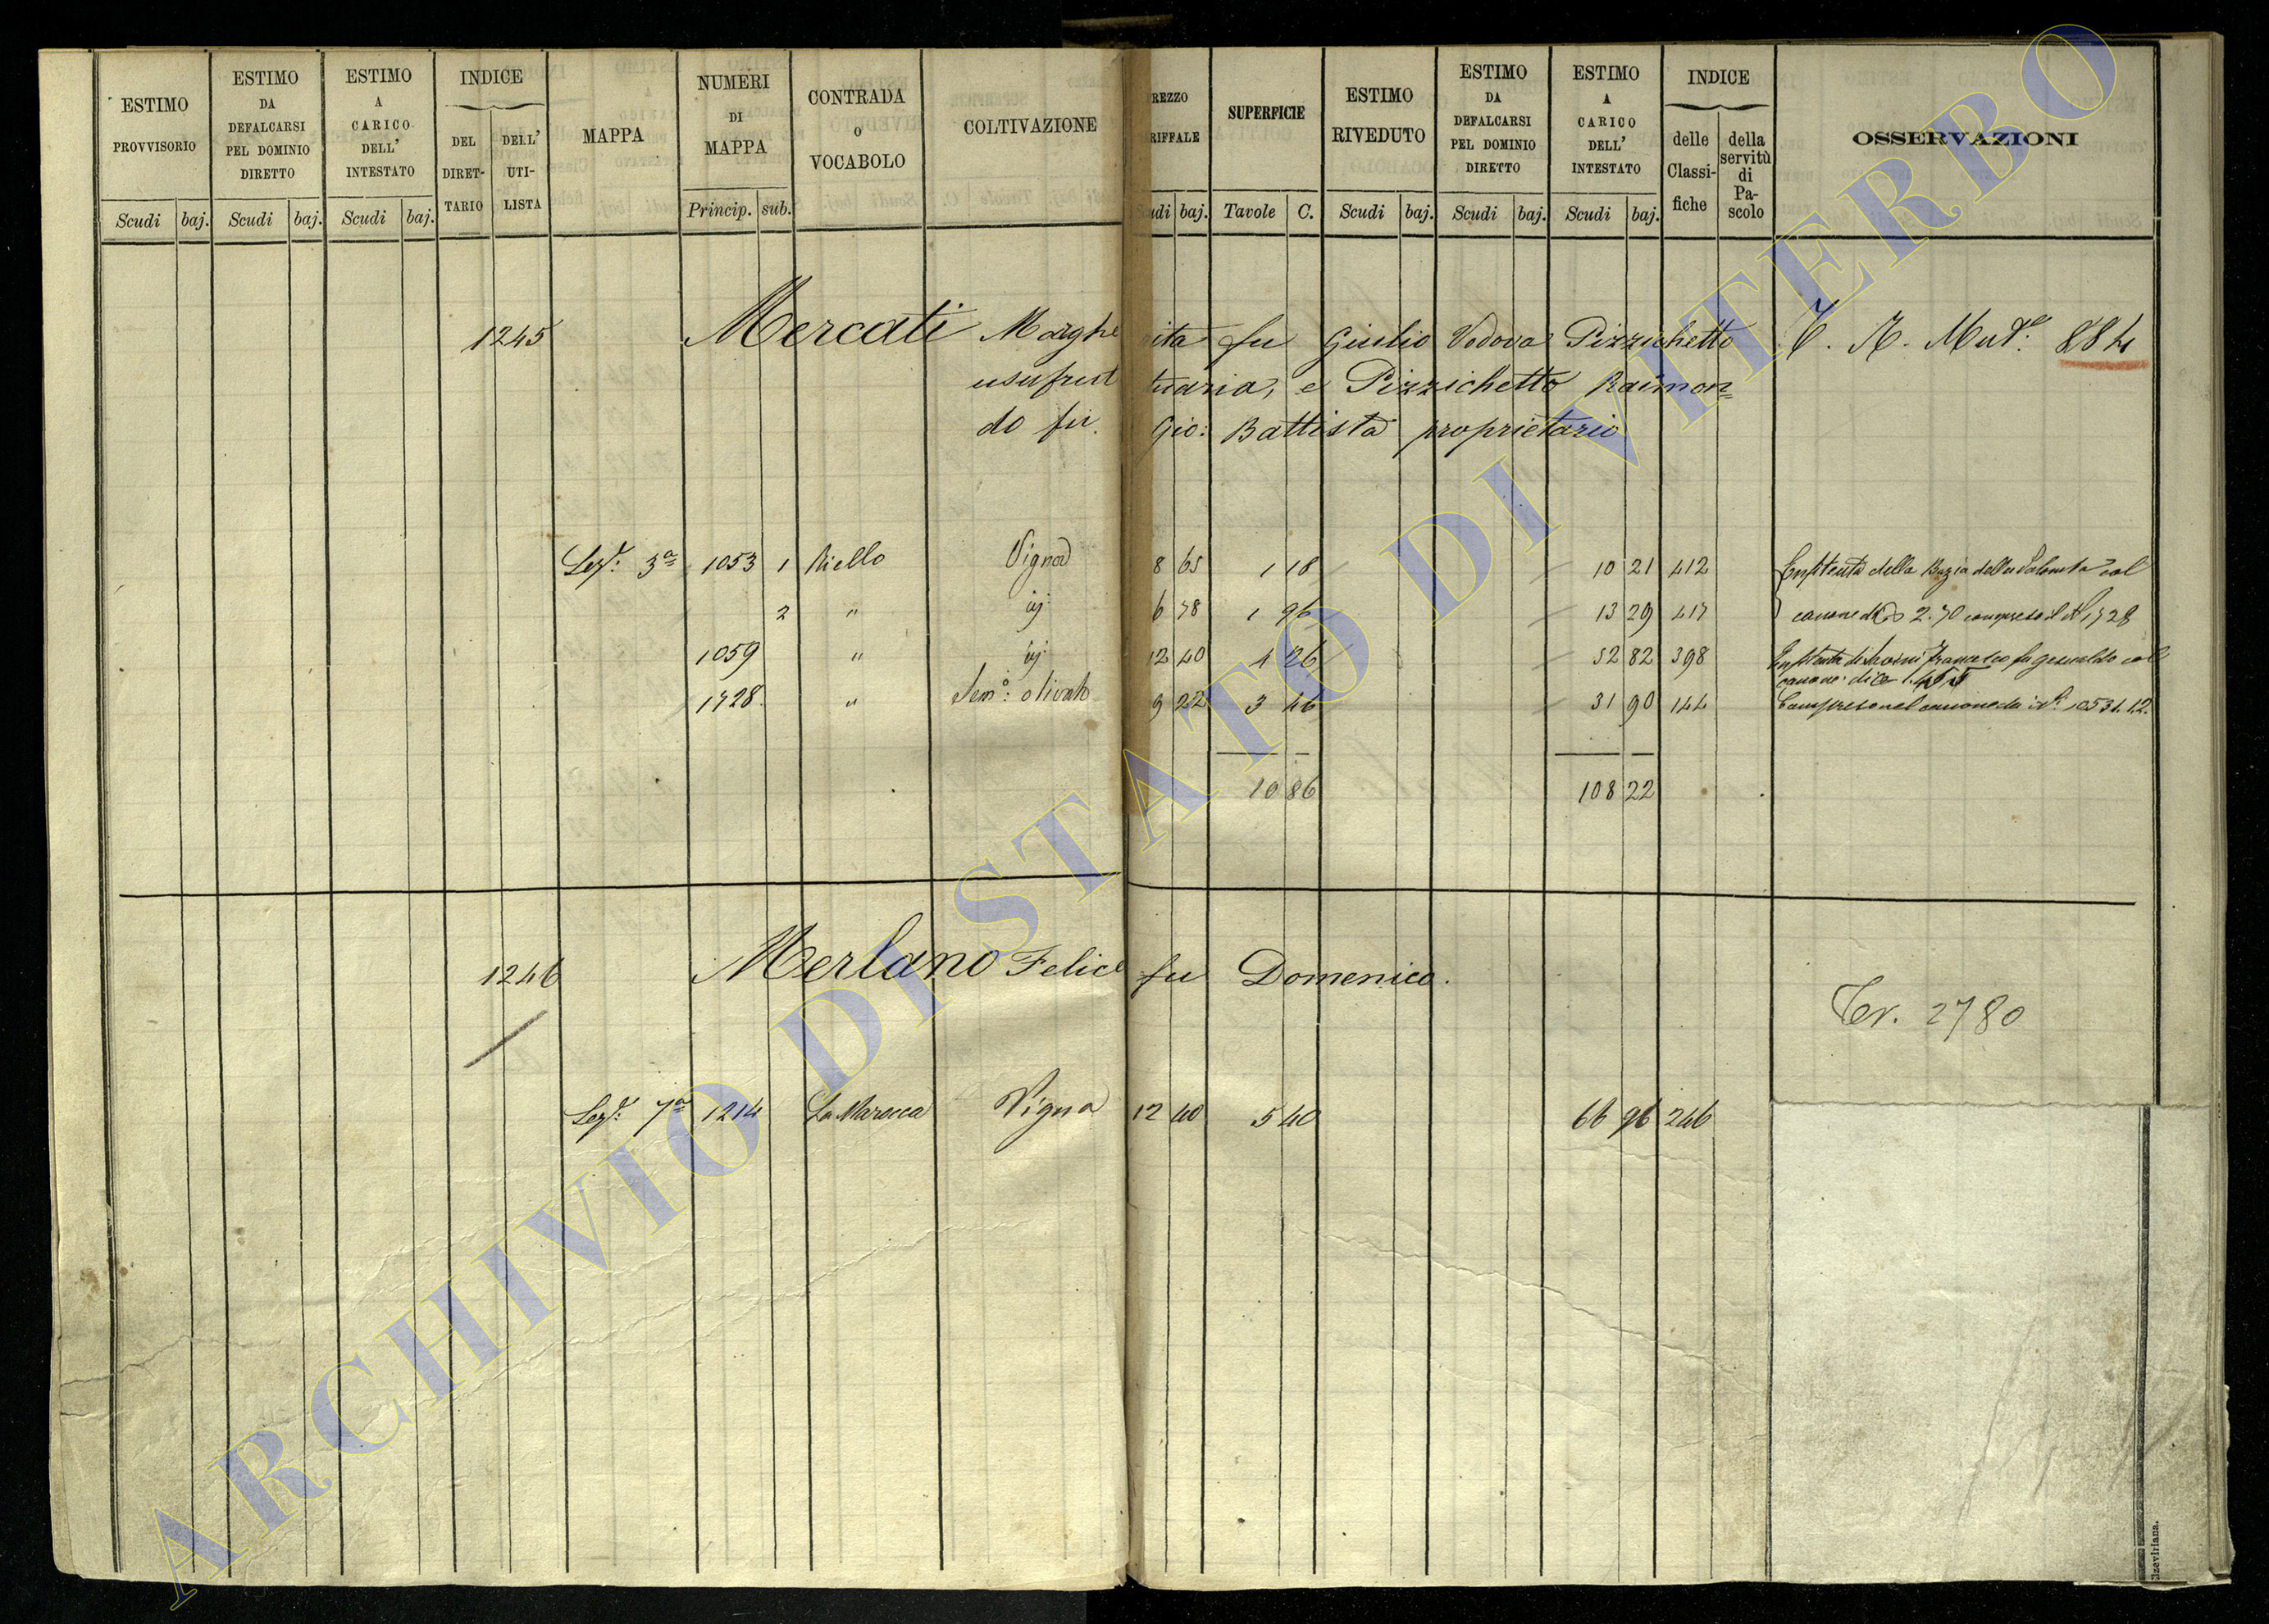 ESTIMO PROVVISORIO
Scudi baj.
ESTIMO DA DEFALCARSI PEL DOMINIO DIRETTO
Scudi baj.
ESTIMO A CARICO DELL' INTESTATO
Scudi baj.
INDICE
DEL DIRET-TARIO
DELL' UTI-LISTA
MAPPA
NUMERI DI MAPPA
Princip. sub.
CONTRADA O VOCABOLO
COLTIVAZIONE
REZZO RIFFALE
udi baj.
SUPERFICIE
Tavole C.
ESTIMO RIVEDUTO
Scudi baj.
ESTIMO DA DEFALCARSI PEL DOMINIO DIRETTO
Scudi baj.
ESTIMO A CARICO DELL' INTESTATO
Scudi baj.
INDICE
delle Classi-fiche
della servitù di Pa-scolo
OSSERVAZIONI
1245 Mercati Marghe rita fu Giulio Vedova Pizzichetto 884
usufrut tuaria, e Pizzichetto Raimon=
do fu Gio: Battista proprietario
Sez: 3a 1053 1 Riello Vigna 8 65 1 18 10 21 412 Enfiteuta della
2 " 6 78 1 96 13 29 417 canone di 2.70 compreso il N 1728
1059 " 12 40 4 26 52 82 398 Francesco fu col
canone di
1728 " Sem: olivato 9 22 3 46 31 90 144 Compreso nel canone dei N: 1053 1.2.
10 86 108 22
1246 Merlano Felice fu Domenico.
2780
Sez: 7a 1214 Vigna 12 40 5 40 66 96 246
Elzeviriana.
ARCHIVIO DI STATO DI VITERBO